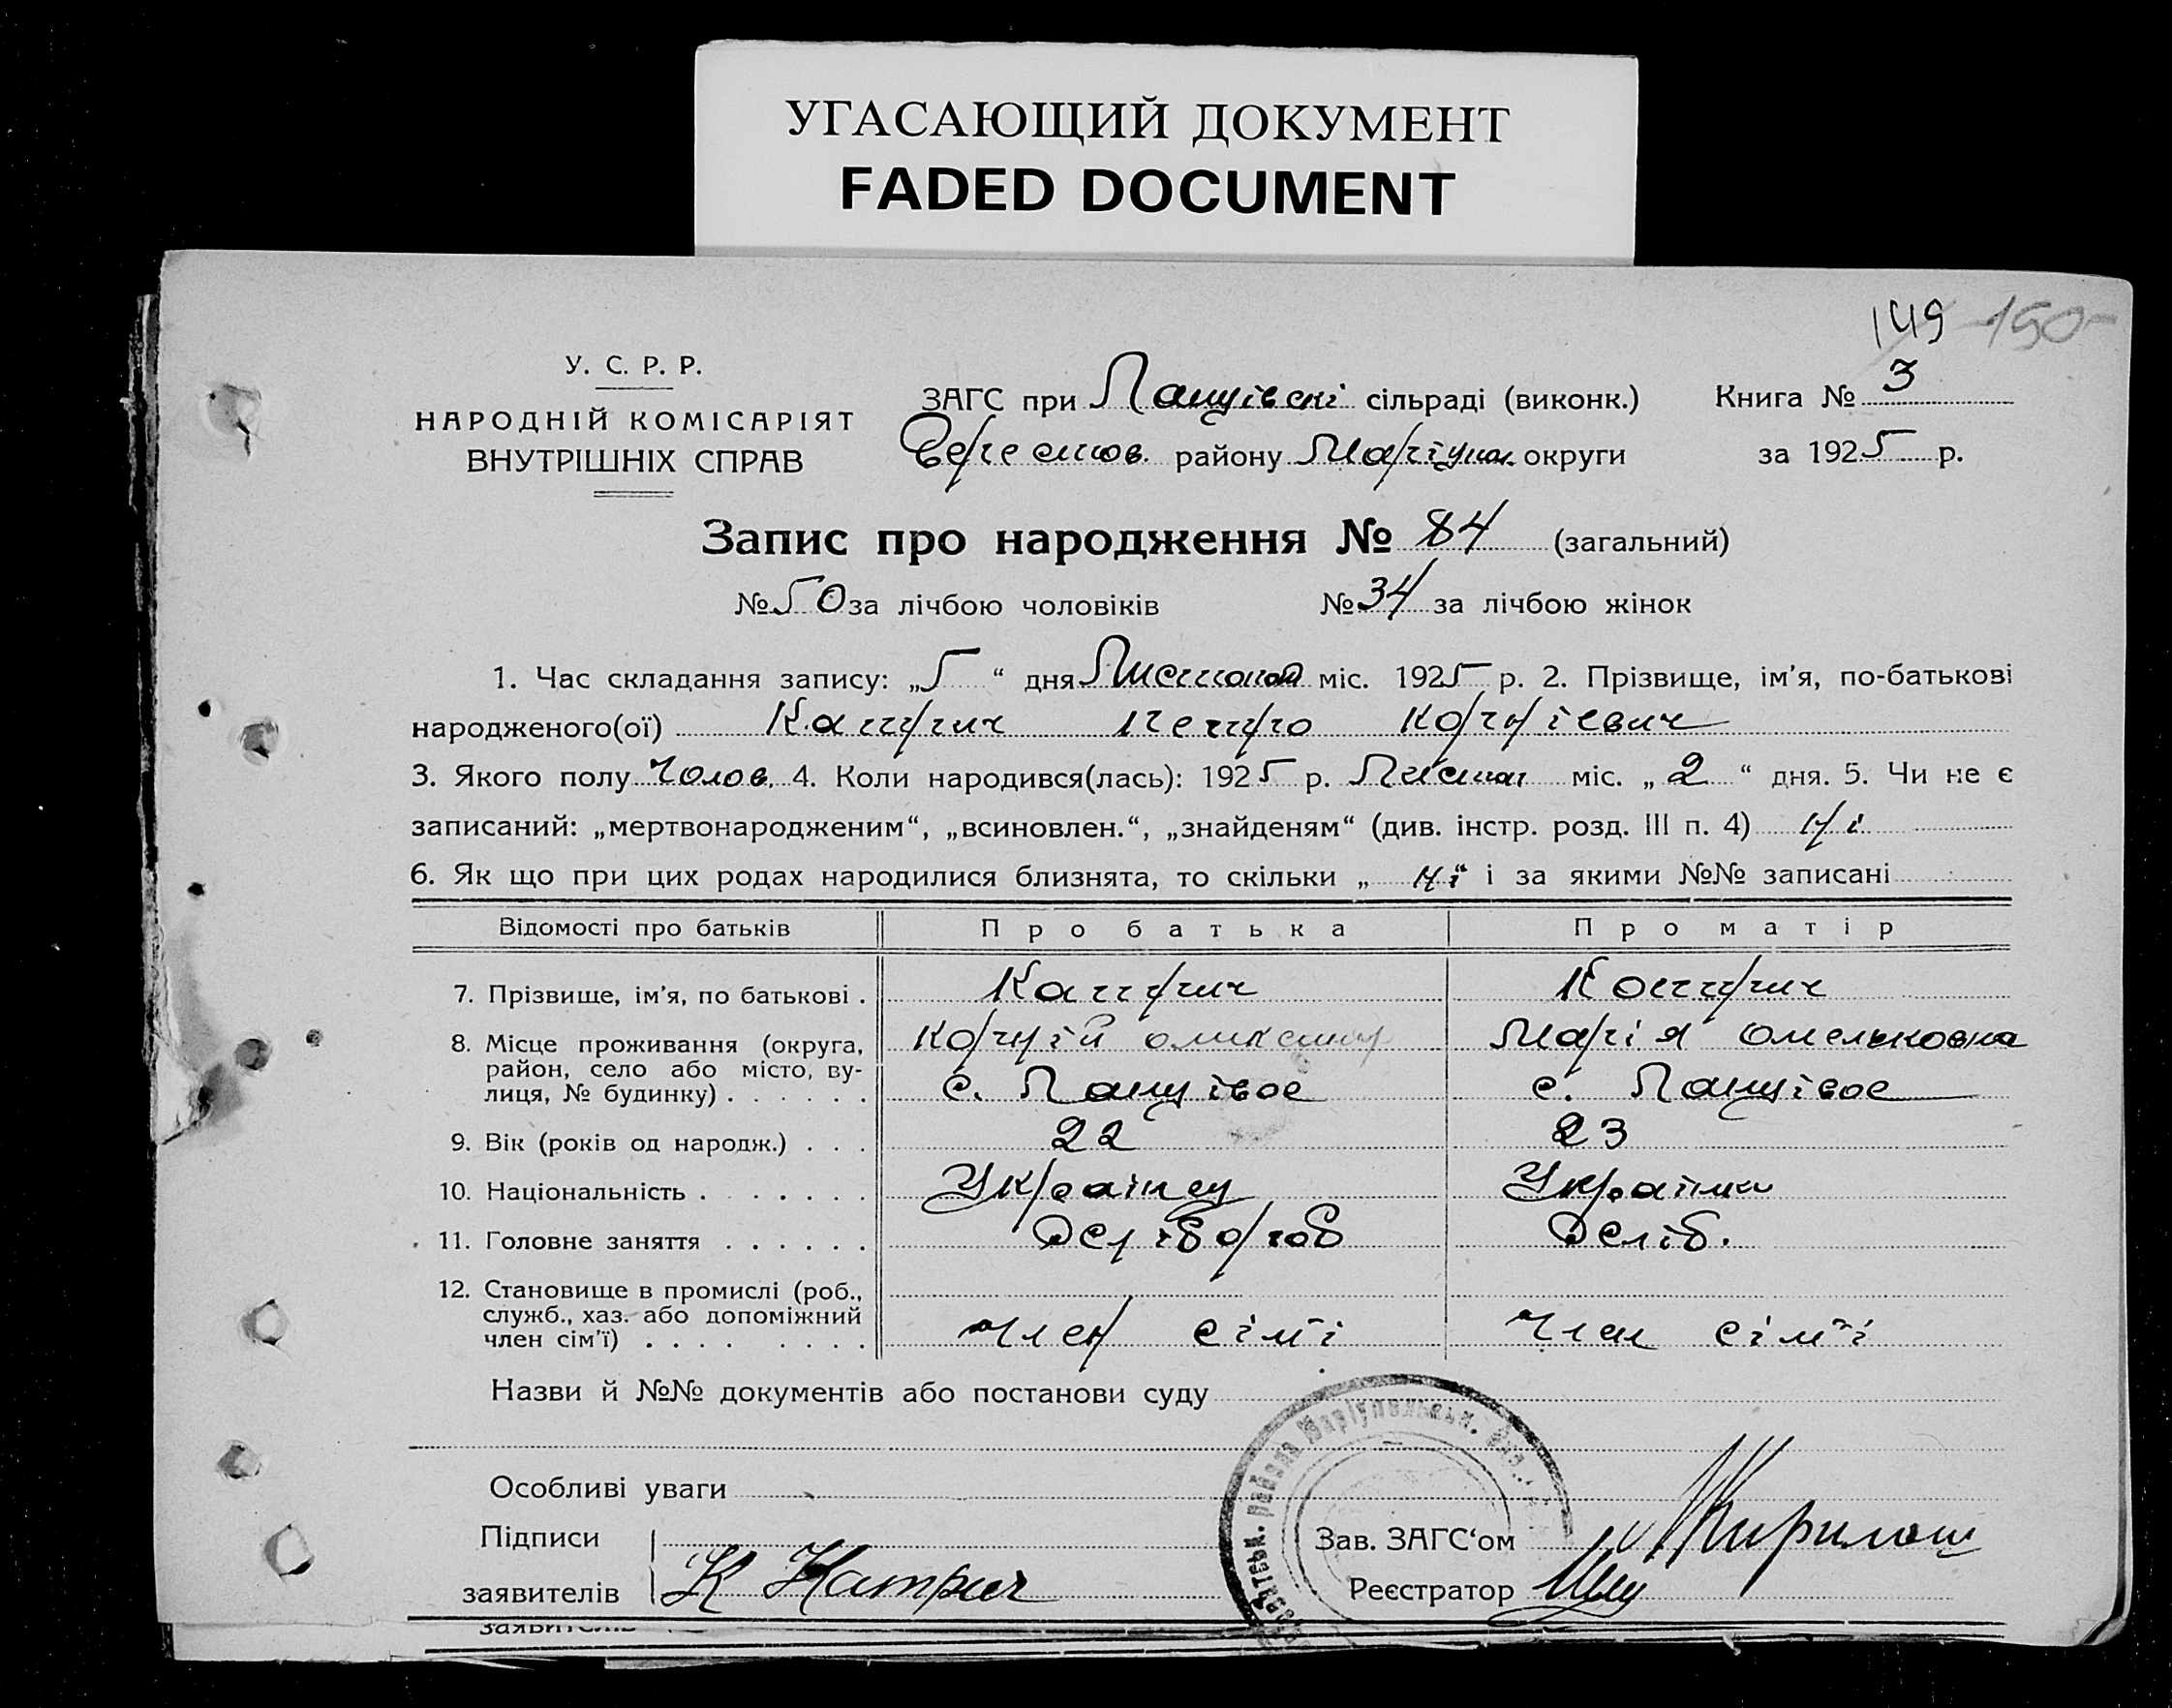 УГАСАЮЩИЙ ДОКУМЕНТ
FADED DOCUMENT
149 150
У. С. Р. Р.
НАРОДНІЙ КОМІСАРІЯТ
ВНУТРІШНІХ СПРАВ
ЗАГС при сільраді (виконк.) Книга № 3
району Маріупол. округи за 1925 р.
Запис про народження № 84 (загальний)
№ 50 за лічбою чоловіків № 34 за лічбою жінок
1. Час складання запису: „5“ дня Листопад міс. 1925 р. 2. Прізвище, ім'я, по-батькові
народженого(ої) Катрич Петро Корнієвич
3. Якого полу Чолов. 4. Коли народився(лась): 1925 р. міс. „2“ дня. 5. Чи не є
записаний: „мертвонародженим“, „всиновлен.“, „знайденям“ (див. інстр. розд. III п. 4) Ні
6. Як що при цих родах народилися близнята, то скільки „Ні“ і за якими №№ записані
Відомості про батьків Про батька Про матір
7. Прізвище, ім'я, по батькові . Катрич Катрич
8. Місце проживання (округа, Корній Марія Омельковна
район, село або місто, ву-
лиця, № будинку) . . . . . . с. с.
9. Вік (років од народж.) . . . 22 23
10. Національність . . . . . . . Українец Українка
11. Головне заняття . . . . . . Хліб.
12. Становище в промислі (роб.,
служб., хаз. або допоміжний
член сім'ї) . . . . . . . . член сім'ї член сім'ї
Назви й №№ документів або постанови суду
Особливі уваги
Підписи Зав. ЗАГС'ом
заявителів К Катрич Реєстратор
району Маріупольськ.